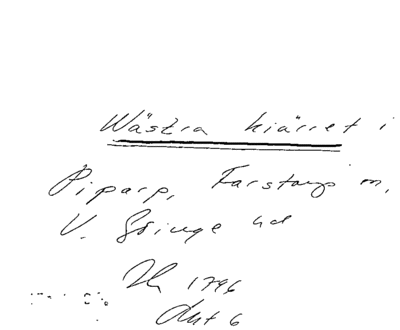 Wästra kiärret i
Piparp, Farstorps m,
V. Göinge hd
1796
Akt 6